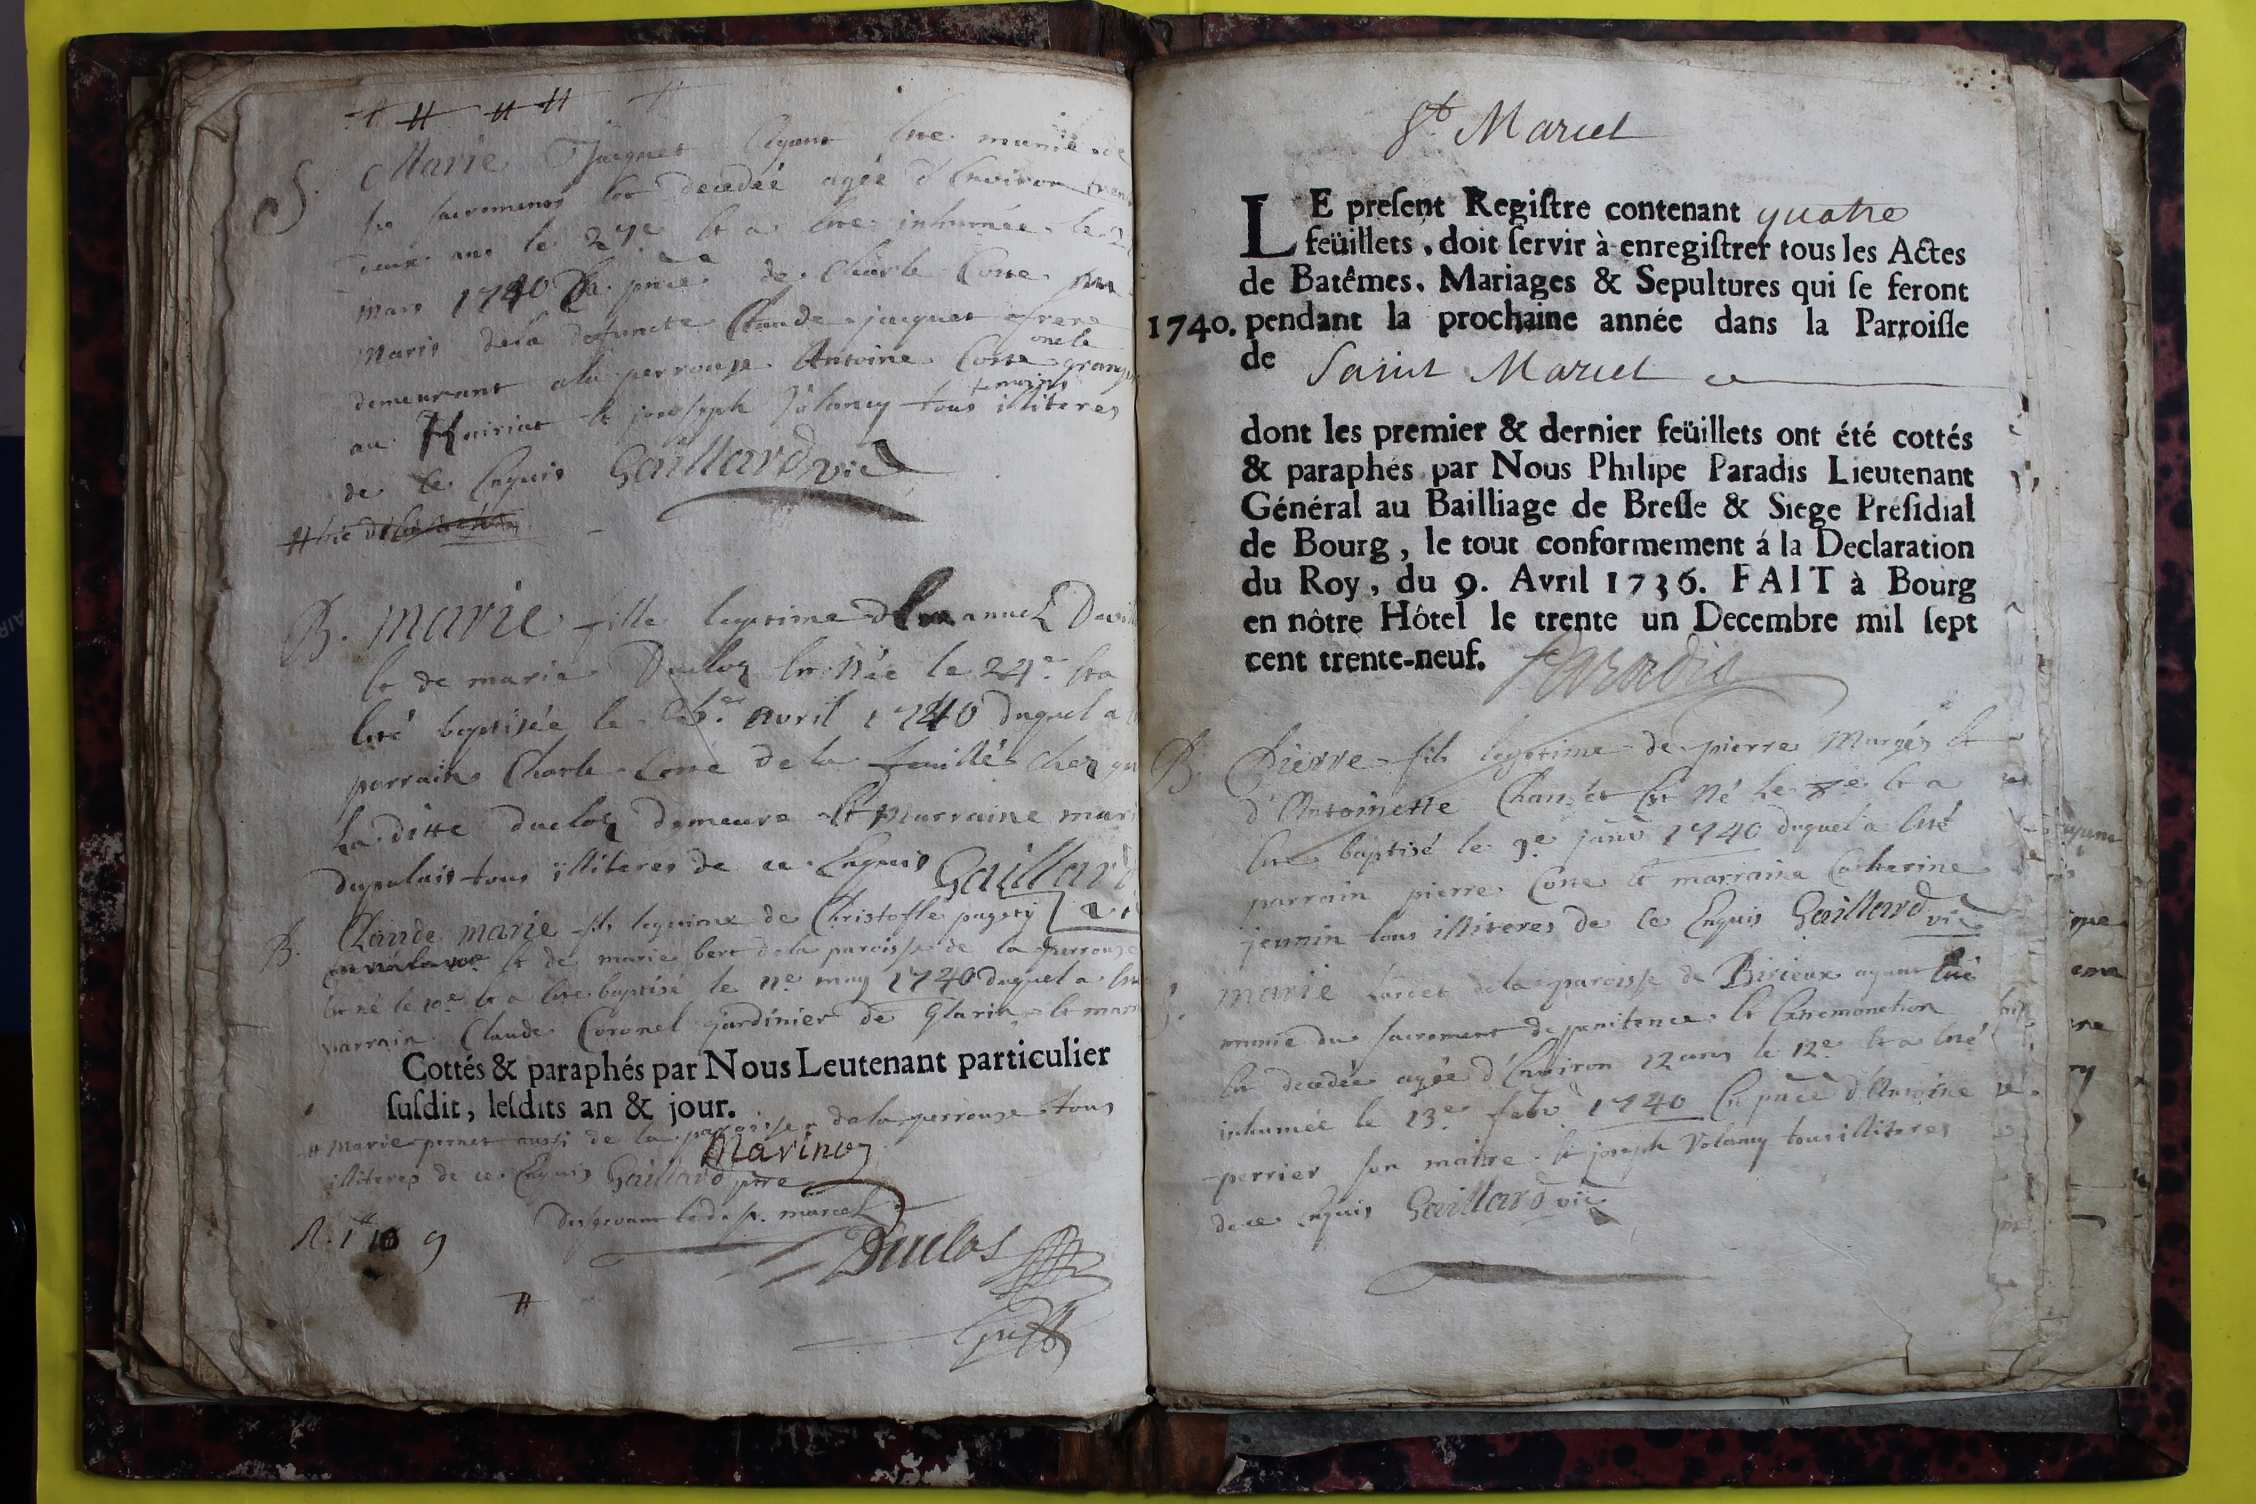 S. Marie Jacquet Ayant été munie de
les sacremens est decedée agée d'Environ tren
deux ans le 27e et a été inhumée le 2
mars 1740 En pñce de Charle Cotte
Maris dela defuncte Claude jacquet frere
demeurant ala perrouse Antoine Cotte oncle granger
au et joseph Volancy tous temoins illiteres
de ce Enquis Gaillard vic
B. marie fille legitime d'Emanuel
et de marie Duclos est Née le 24e et a
été baptisée le avril 1740 duquel a
parrain Charle Cotte De la feuillée Chez qu
La ditte duclos demeure Et Marraine mari
dupulais tous illiteres de ce Enquis Gaillard
B. Claude marie fils legitime de Christofle
et de marie bert dela paroisse de la perrouse
est né le 10e et a été baptisé le 11e may 1740 duquel a
parrain Claude Coronel jardinier de Glarin et marr
Cottés & paraphés par Nous Leutenant particulier
susdit, lesdits an & jour.
# Marie pernet aussi de la paroisse dela perrouse tous
illiteres de ce Enquis Gaillard ptre
Marinon
desservant led. st. marcel
Duclos
St Marcel
LE present Registre contenant quatre
feüillets, doit servir à enregistrer tous les Actes
de Batêmes, Mariages & Sepultures qui se feront
1740. pendant la prochaine année dans la Parroisse
de Saint Marcel
dont les premier & dernier feüillets ont été cottés
& paraphés par Nous Philipe Paradis Lieutenant
Général au Bailliage de Bresse & Siege Présidial
de Bourg, le tout conformement á la Declaration
du Roy, du 9. Avril 1736. FAIT à Bourg
en nôtre Hôtel le trente un Decembre mil sept
cent trente-neuf. Paradis
B. Pierre fils legitime de pierre Margés et
d'Antoinette est Né le 8e et a
été baptisé le 9e janv 1740 duquel a été
parrain pierre Cotte et marraine Catherine
jeunin tous illiteres de ce Enquis Gaillard vic
S. marie Larcet dela paroisse de Birieux ayant été
munie du sacrement de penitence et Extremonction
est decedée agée d'Environ 12 ans le 12e et a été
inhumée le 13e febv 1740 En pñce d'Antoine
perrier son maitre et joseph Volancy tous illiteres
de ce Enquis Gaillard vic